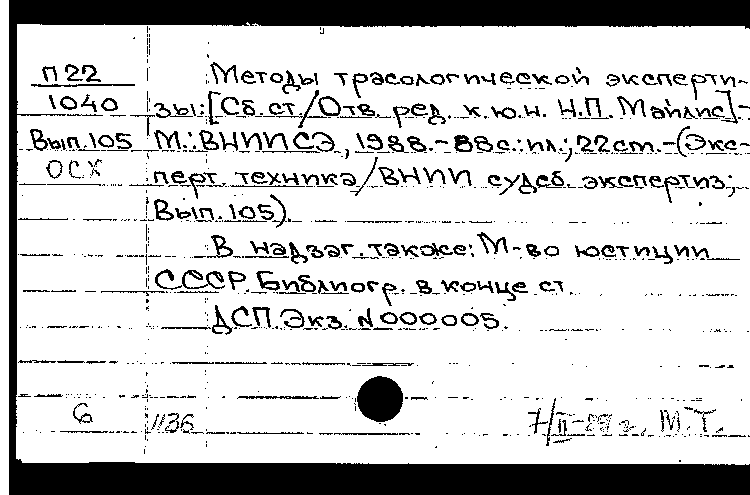 П22 Методы трасологической эксперти-
1040 зы: [Сб. ст./Отв. ред. к.ю.н. Н.П. Майлис].-
Вып.105 М.: ВНИИСЭ, 1988.-88с.: ил.; 22 cm.-(Экс-
ОСХ перт. техника/ВНИИ судеб. экспертиз;
Вып. 105).
В надзаг. также: М-во юстиции
СССР. Библиогр. в конце ст.
ДСП. Экз. N000005.
6 1136 7/II-89 г. М.Т.